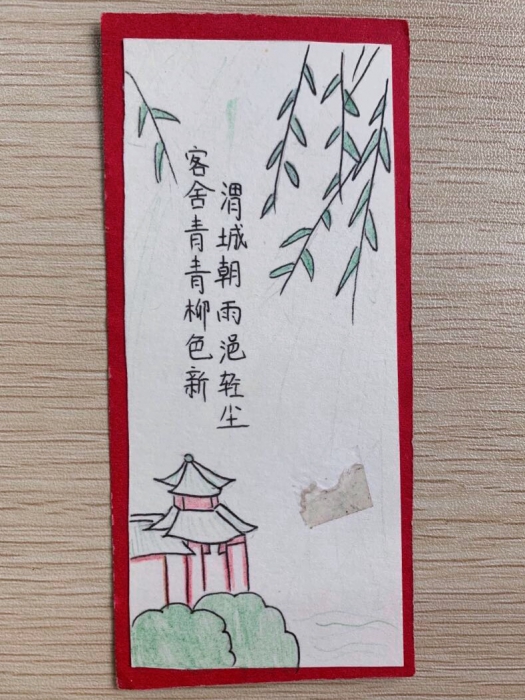 渭城朝雨浥轻尘
客舍青青柳色新